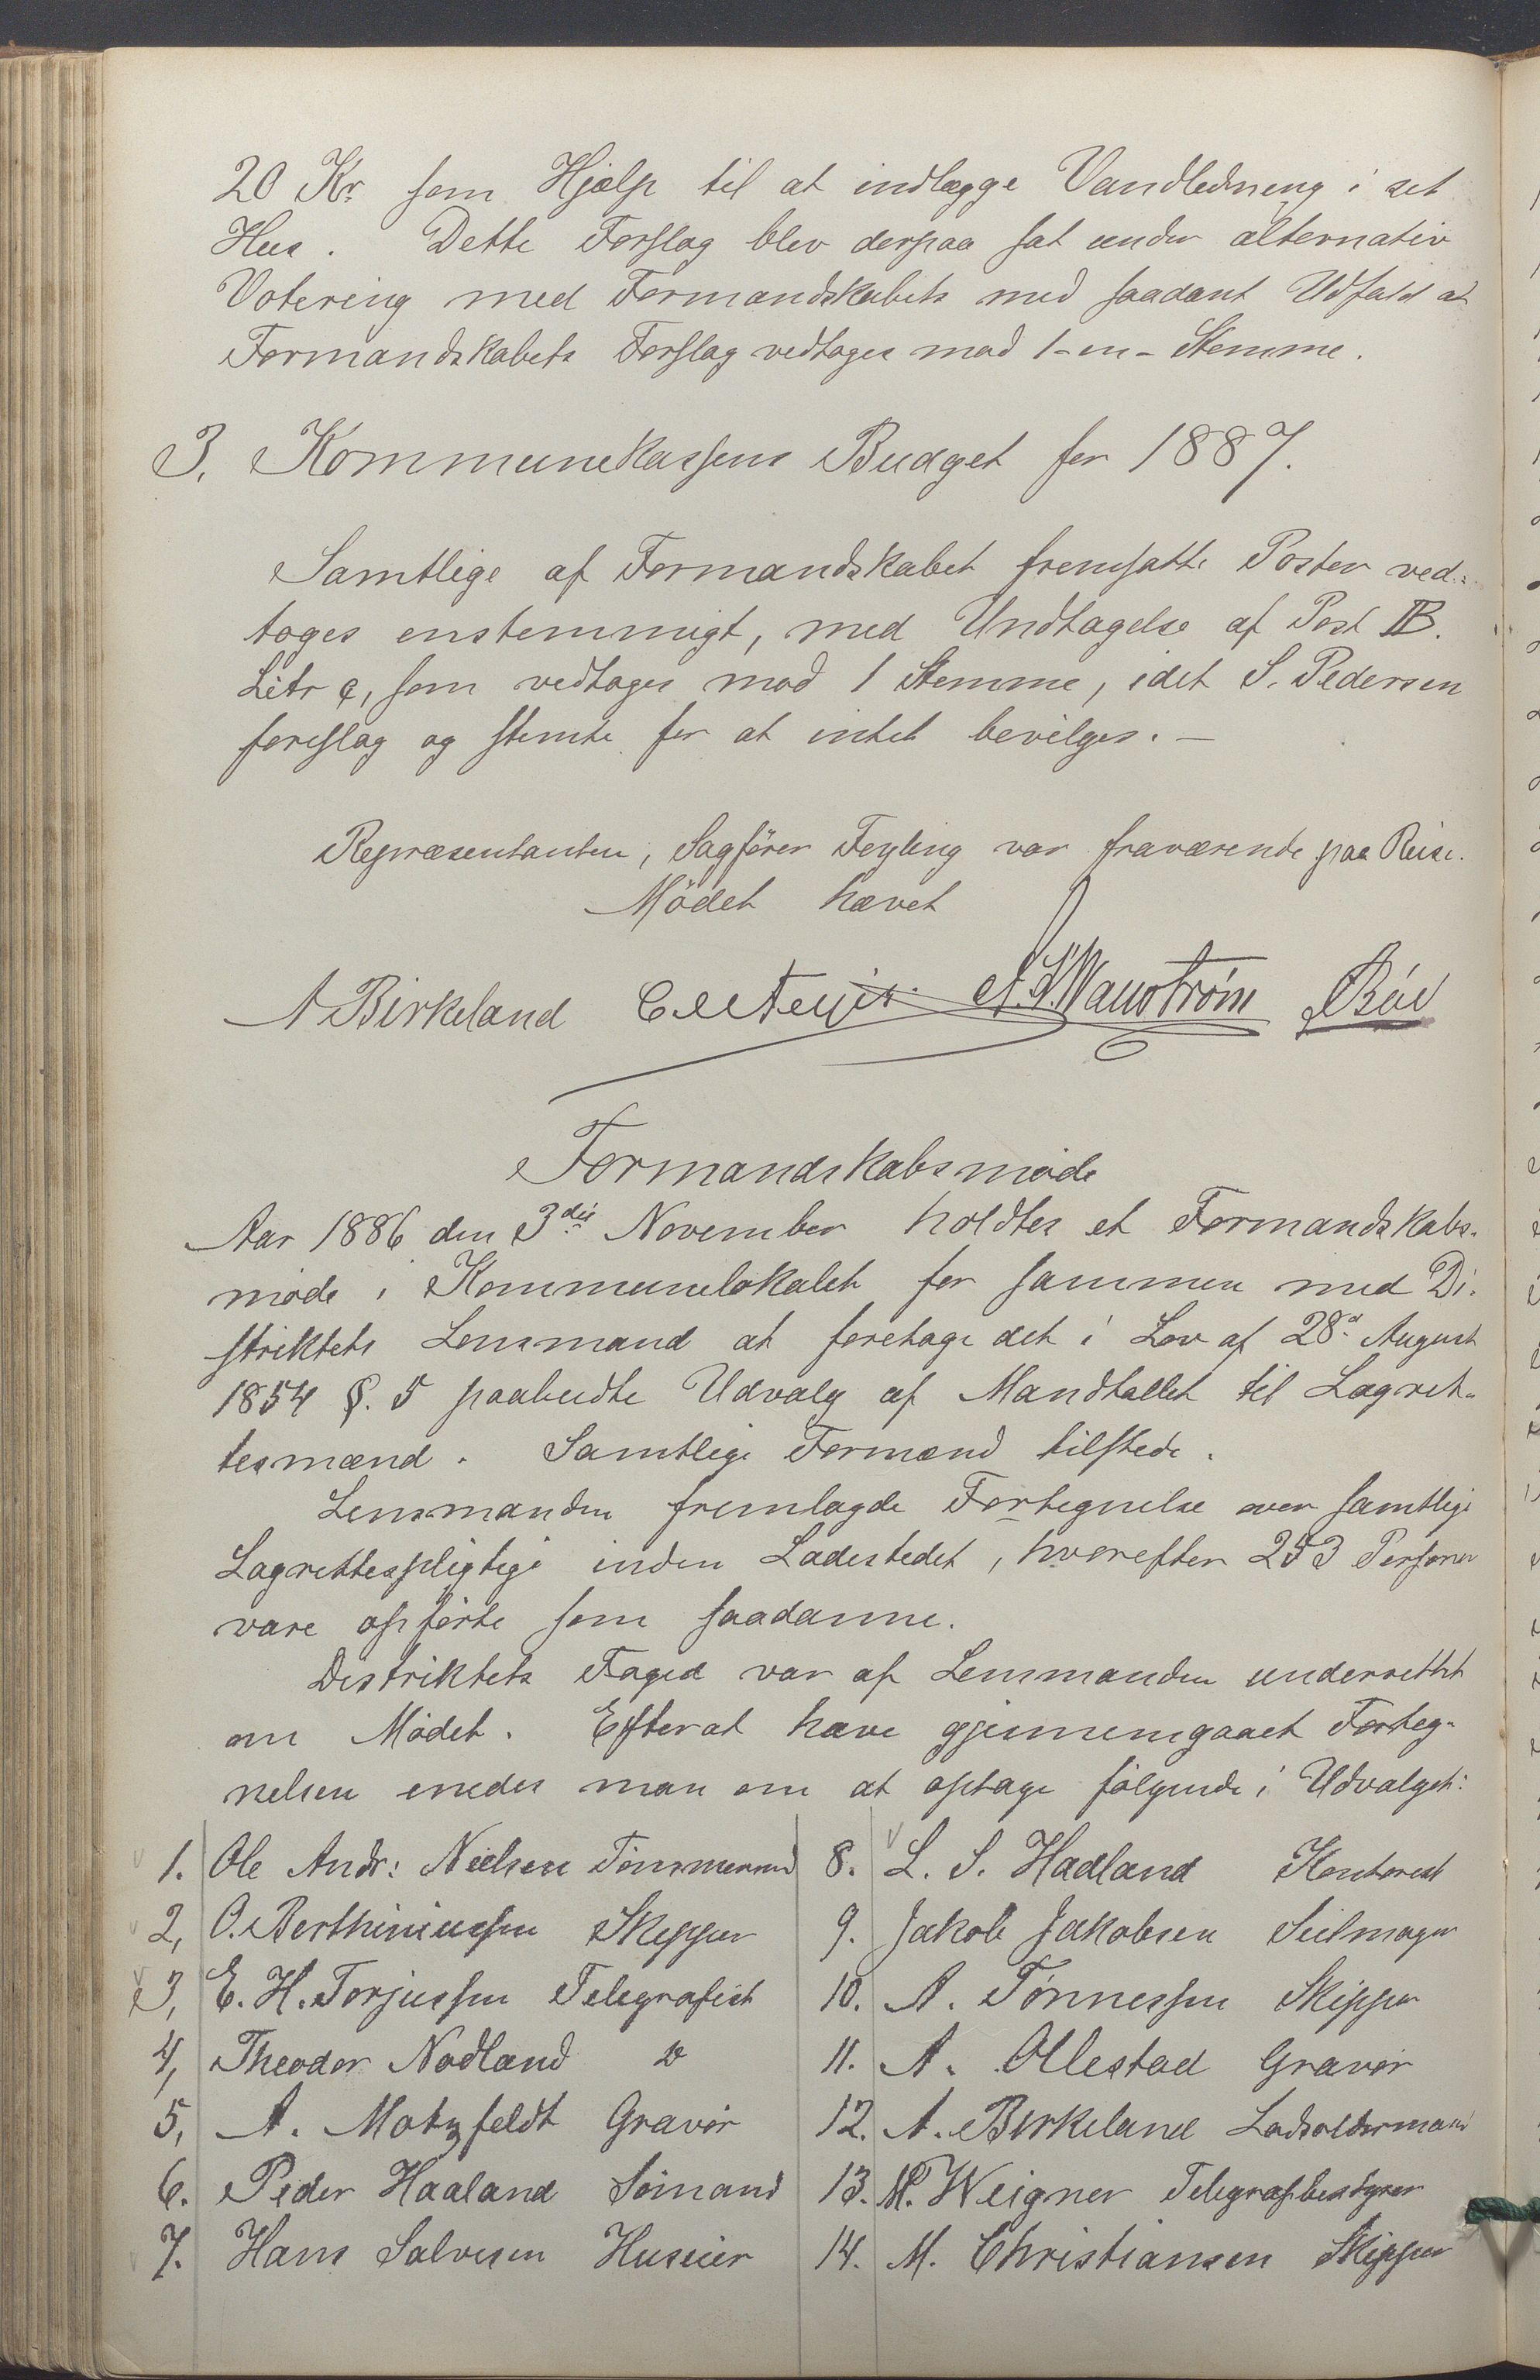 20 Kr. som Hjælp til at indlægge Vandledning i sit
Hus. Dette Forslag blev derpaa sat under alternativ
Votering med Formandskabets med saadant Udfald at
Formandskabets Forslag vedtages mod 1-en- Stemme.
3. Kommunekassens Budget for 1887.
Samtlige af Formandskabet fremsatte Poster ved-
toges enstemmigt, med Undtagelse af Post II B.
Litr c, som vedtoges mod 1 Stemme, idet S. Pedersen
foreslog og stemte for at intet bevilges. —
Repræsentanten, Sagfører Feyling var fraværende paa Reise.
Mödet hævet
A Birkeland
Formandskabsmöde
Aar 1886 den 3die November holdtes et Formandskabs-
möde i Kommunelokalet for sammen med Di-
striktets Lensmand at foretage det i Lov af 28d. August
1854 §. 5 paabudte Udvalg af Mandtallet til Lagret-
tesmænd. Samtlige Formænd tilstede.
Lensmanden fremlagde Fortegnelse over samtlige
Lagrettespligtige inden Ladestedet, hvorefter 253 Personer
vare opførte som saadanne.
Distriktets Foged var af Lensmanden underrettet
om Mödet. Efterat have gjennemgaaet Forteg-
nelsen enedes man om at optage fölgende i Udvalget:
1. Ole Andr: Nielsen Tömmermd
2, O. Berthiniussen Skipper
3, E. H. Torjussen Telegrafist
4, Theodor Nodland do
5, A. Motzfeldt Gravör
6. Peder Haaland Sömand
7. Hans Salvesen Huseier
8. L. S. Hadland Kontorist
9. Jakob Jakobsen Seilmager
10. A. Tönnessen Skipper
11. A. Ollestad Gravör
12. A. Birkeland Lodsoldermand
13. M. Weigner Telegrafbestyrer
14. M. Christiansen Skipper